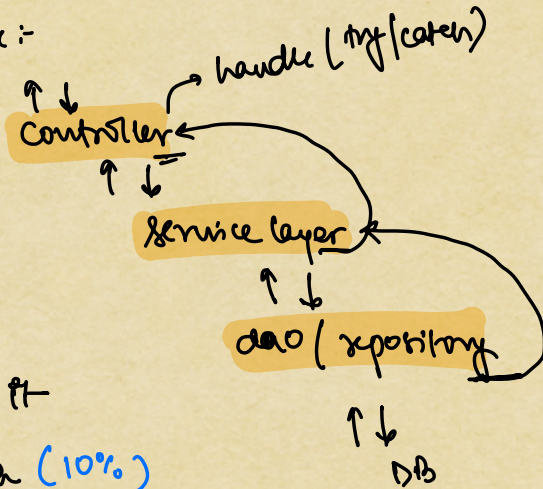 :-
handle (try/catch)
controller
service layer
dao / repository
it
(10%)
DB